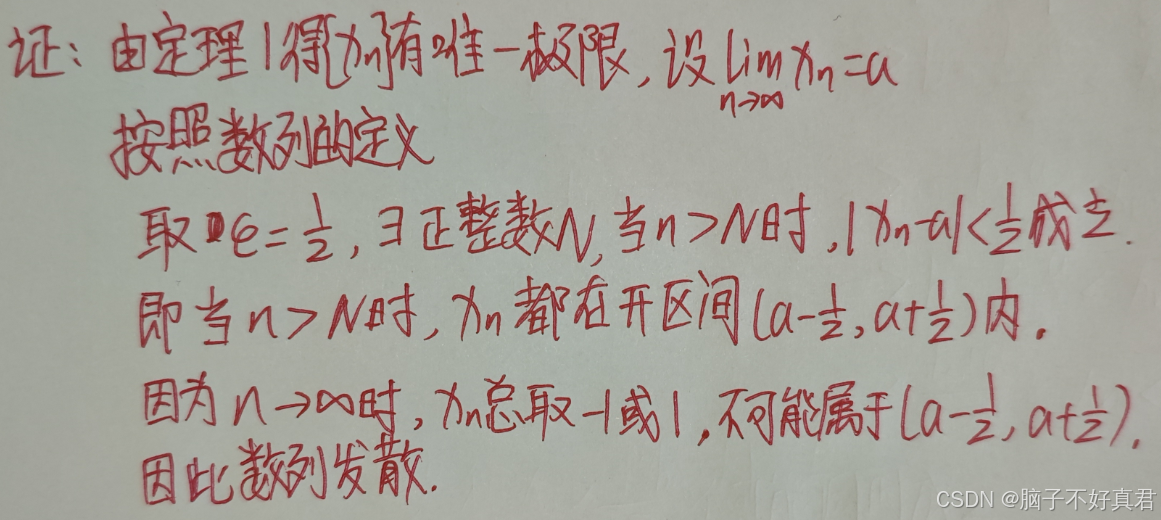 证：由定理1得{xn}有唯一极限，设lim xn=a
n→∞
按照数列的定义
取ε=1/2，∃正整数N，当n>N时，|xn-a|<1/2成立.
即当n>N时，xn都在开区间(a-1/2,a+1/2)内.
因为n→∞时，xn总取-1或1，不可能属于(a-1/2,a+1/2).
因此数列发散.
CSDN @脑子不好真君